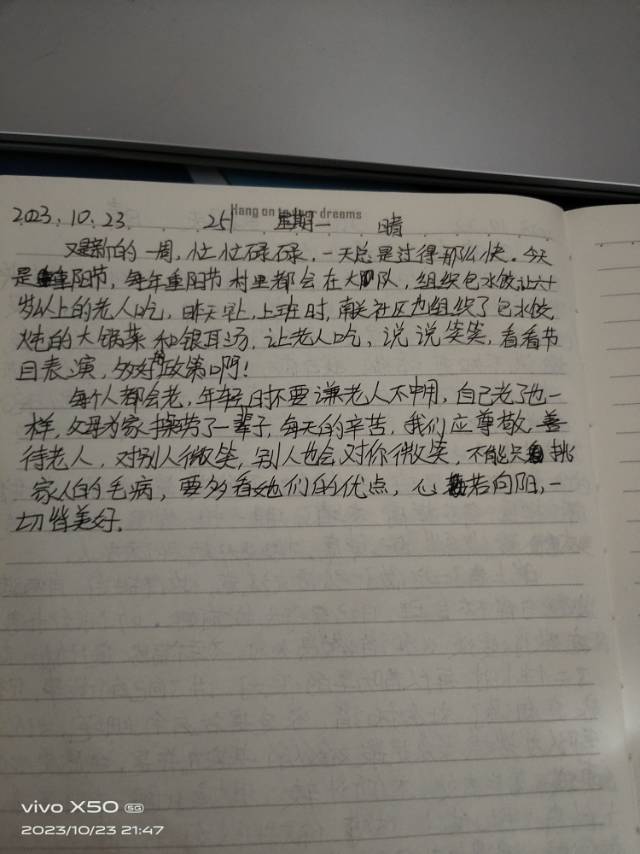 Hang on to your dreams
2023.10.23 251 星期一 晴
又是新的一周，忙忙碌碌，一天总是过得那么快。今天
是重阳节，每年重阳节村里都会在大队，组织包水饺让六十
岁以上的老人吃，昨天早上，上班时，南关社区也组织了包水饺，
炖的大锅菜和银耳汤，让老人吃，说说笑笑，看看节
目表演，多好的政策啊！
每个人都会老，年轻时不要嫌老人不中用，自己老了也一
样，父母为家操劳了一辈子，每天的辛苦，我们应尊敬，善
待老人，对别人微笑，别人也会对你微笑，不能只挑
家人的毛病，要多看她们的优点，心若向阳，一
切皆美好。
vivo X50 5G
2023/10/23 21:47